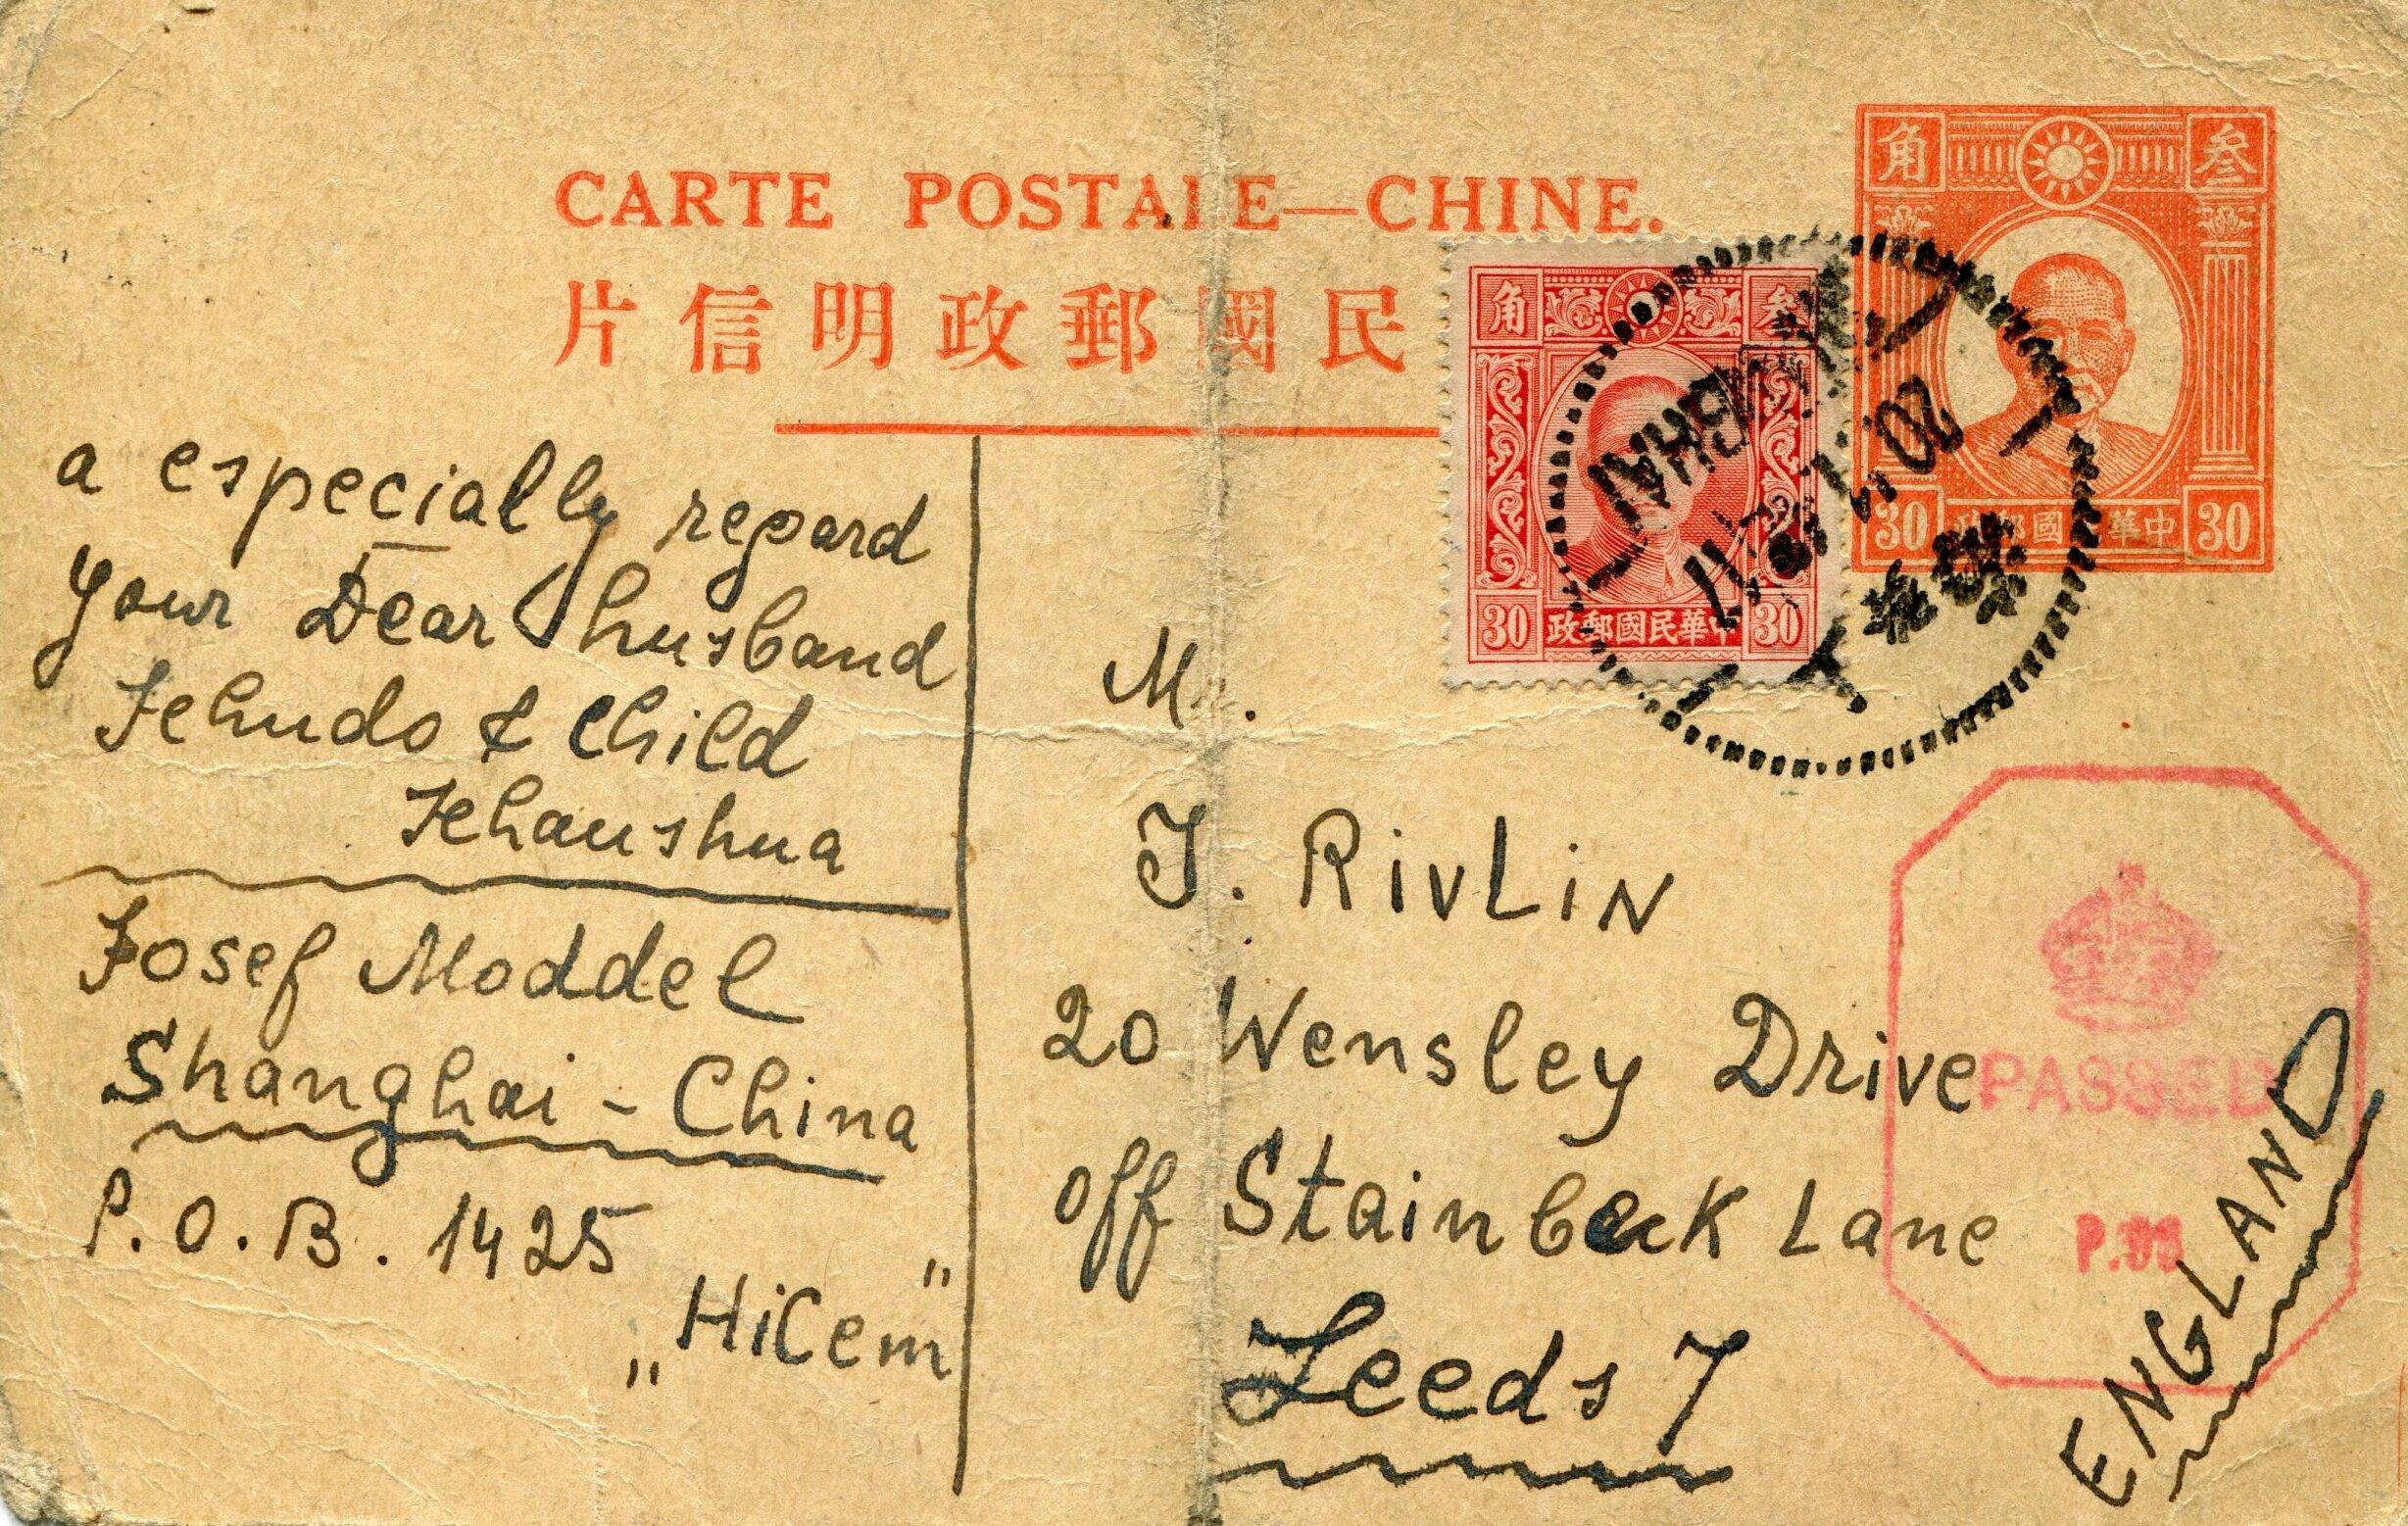 CARTE POSTALE—CHINE.
片信明政郵國民
角 叁
30 政郵國民華中 30
角 叁
30 政郵國 華中 30
SHANGHAI
20.
上海
a especially regard
your Dear husband
Jehudo & Child
Jehaushua
Josef Moddel
Shanghai - China
P.O.B. 1425
„HiCem"
M.
J. RivLiN
20 Wensley Drive
off Stainbeck Lane
Leeds 7
ENGLAND
PASSED